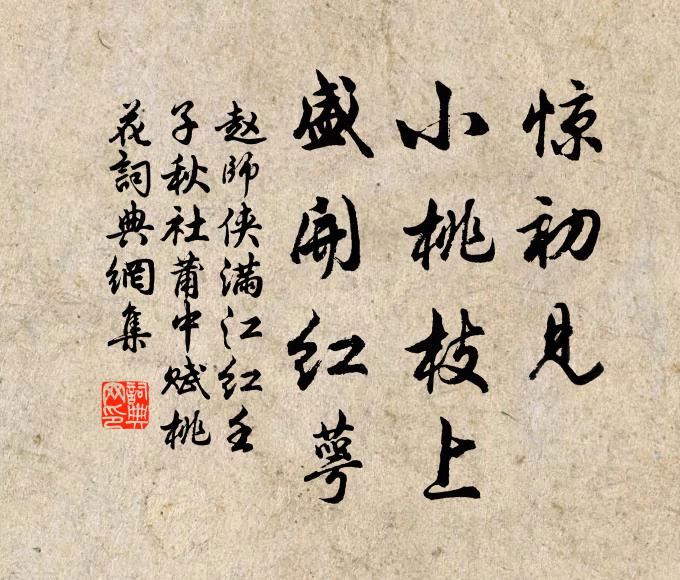 惊初见
小桃枝上
盛开红萼
赵师侠满江红壬
子秋社莆中赋桃
花詞典網集
詞典网印